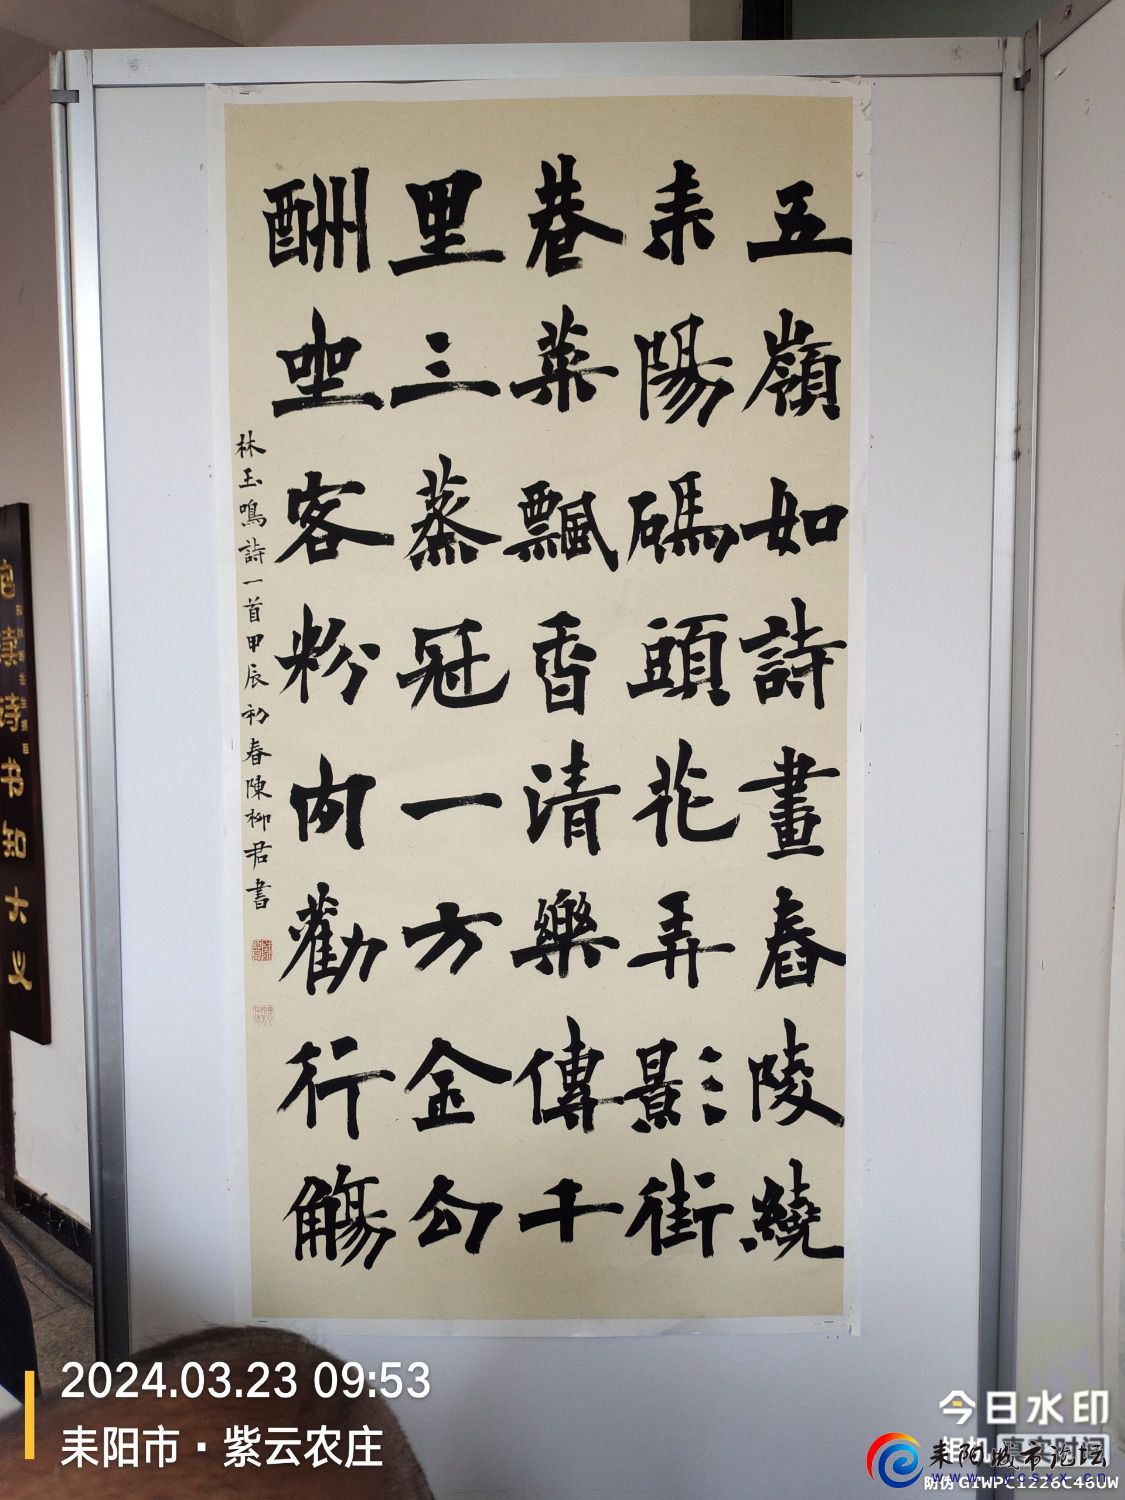 五嶺如詩畫舂陵繞
耒陽碼頭花弄影街
巷菜飄香清樂傳千
里三蒸冠一方金勾
酬坐客粉肉勸行觴
林玉鳴詩一首甲辰初春陳柳君書
诗书知大义
2024.03.23 09:53
耒阳市·紫云农庄
今日水印
相机 真实时间
耒阳城市论坛
防伪 GIWPC1226C46UW